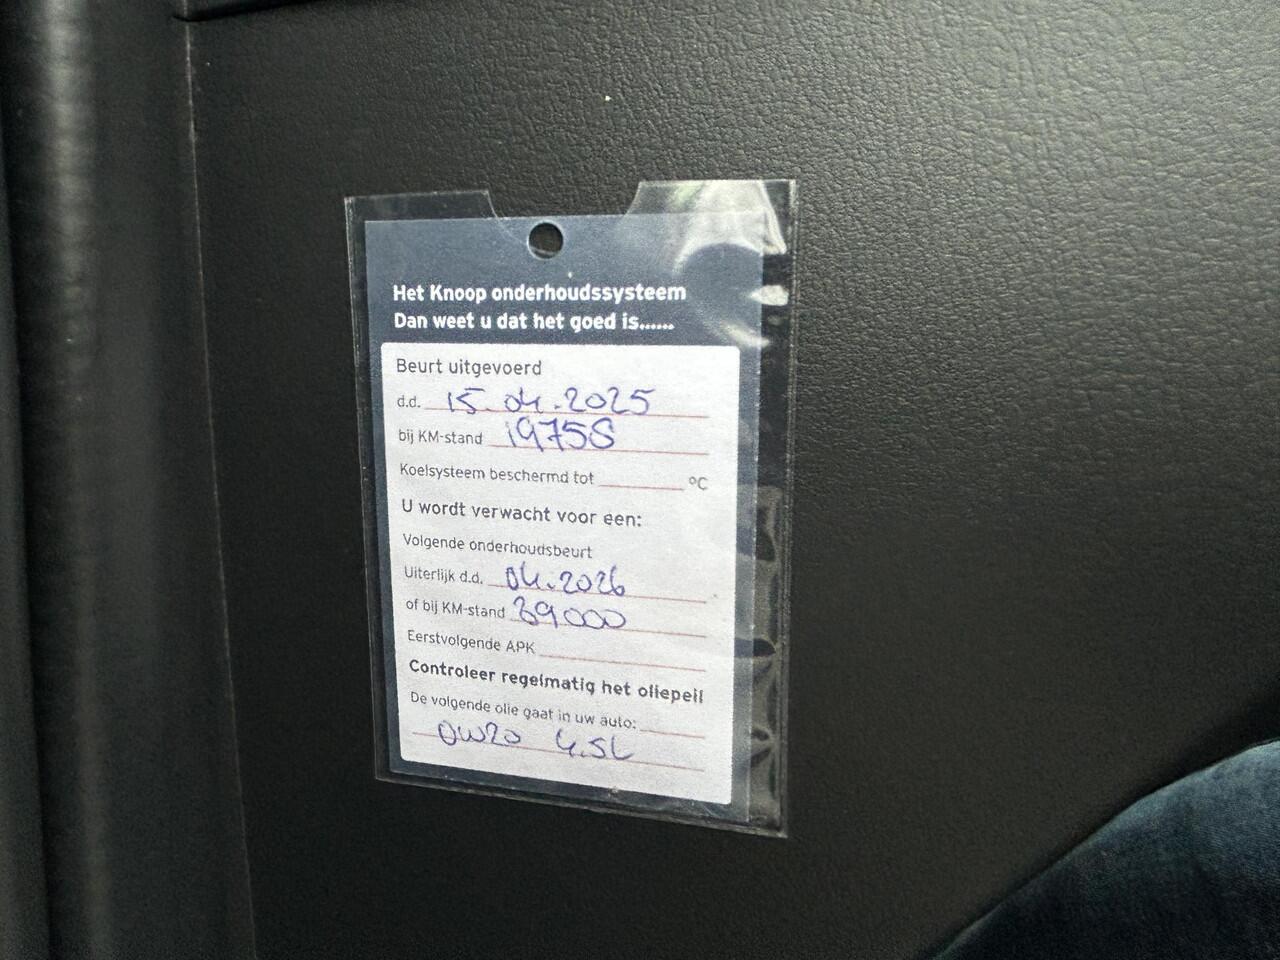 Het Knoop onderhoudssysteem
Dan weet u dat het goed is......
Beurt uitgevoerd
d.d. 15.04.2025
bij KM-stand 19758
Koelsysteem beschermd tot ______ °C
U wordt verwacht voor een:
Volgende onderhoudsbeurt
Uiterlijk d.d. 04.2026
of bij KM-stand 39000
Eerstvolgende APK
Controleer regelmatig het oliepeil
De volgende olie gaat in uw auto:
0W20 4.5L